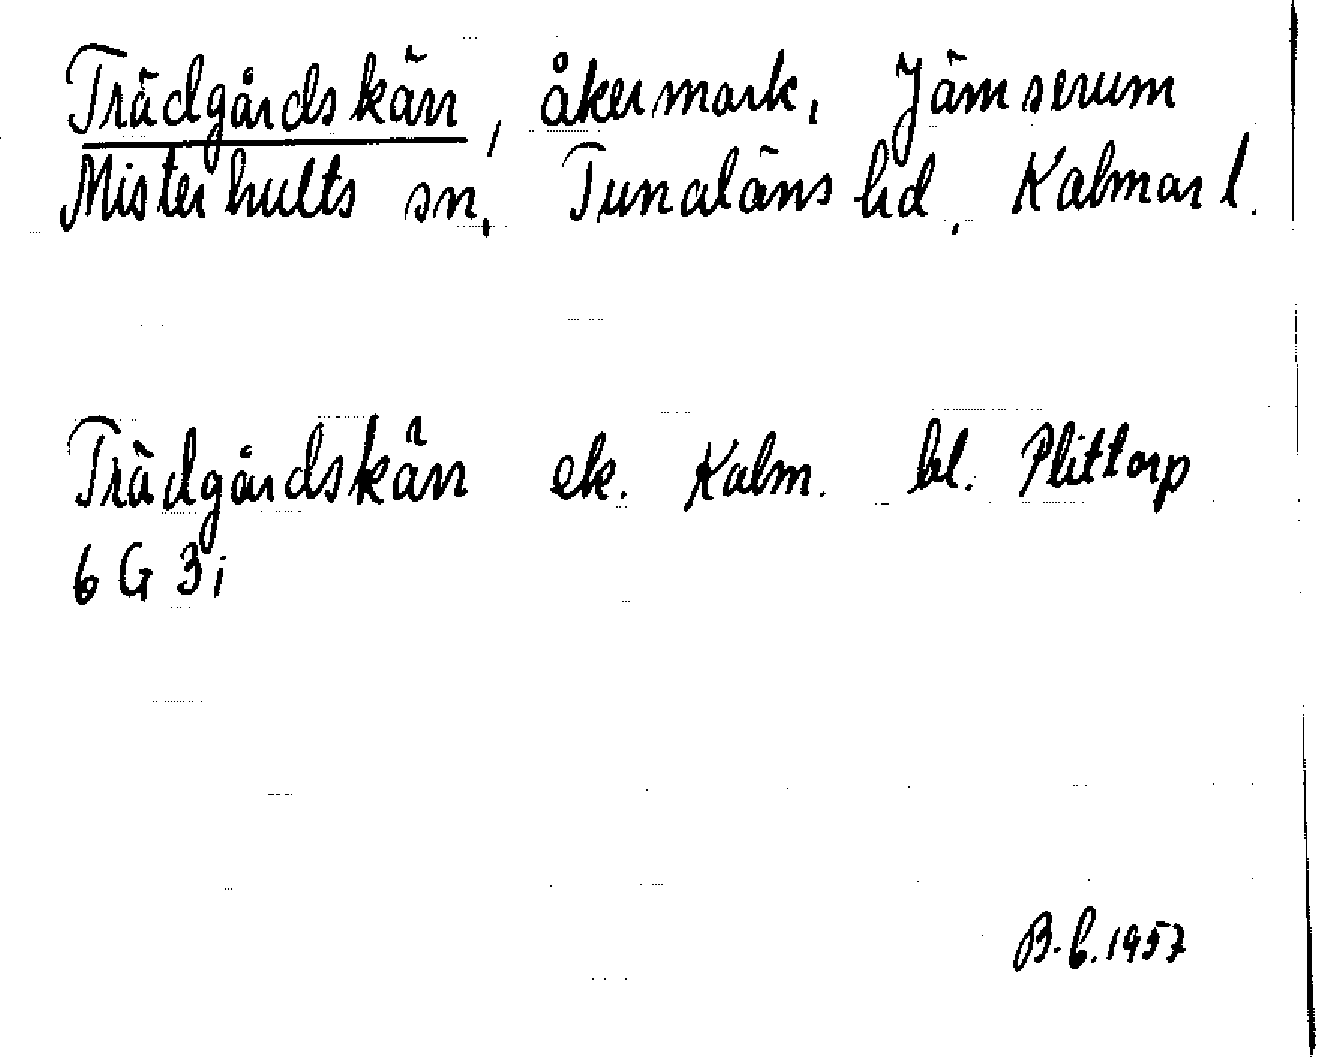 Trädgårdskärr, åkermark, Jämserum
Misterhults sn, Tunaläns hd, Kalmar l.
Trädgårdskärr ek. Kalm. bl. Plittorp
6 G 3i
B.G. 1957